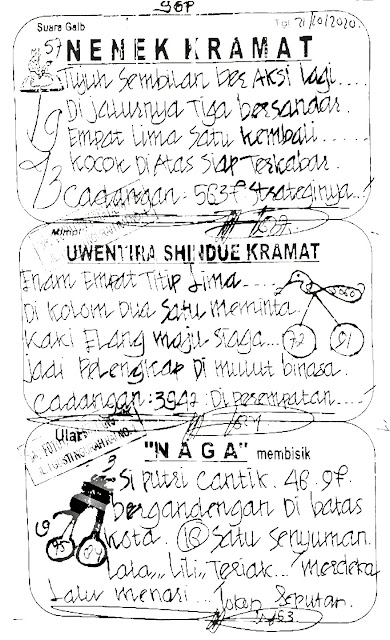 SGP
Suara Gaib
Tgl 21/10/2020
57 NENEK KRAMAT
Tujuh Sembilan ber AKSi lagi....
Di Jalurnya Tiga bersandar.
Empat Lima Satu kembali....
Kocok Di Atas Siap Terkabar.
Cadangan : 5637 Strateginya..!
19
73
Mimpi
UWENTIRA SHINDUE KRAMAT
Enam Empat Titip Lima....
Di kolom Dua Satu Meminta
Kaki Elang maju siaga....
72 01
Jadi Pelengkap Di mulut binasa.
Cadangan : 3942 : Di Perempatan.....
Ular
"NAGA" membisik
Si Putri Cantik. 48. 97.
bergandengan Di batas
kota. 18 Satu Senyuman.
Lala,, Lili,, Teriak... Merdeka
Lalu menari...